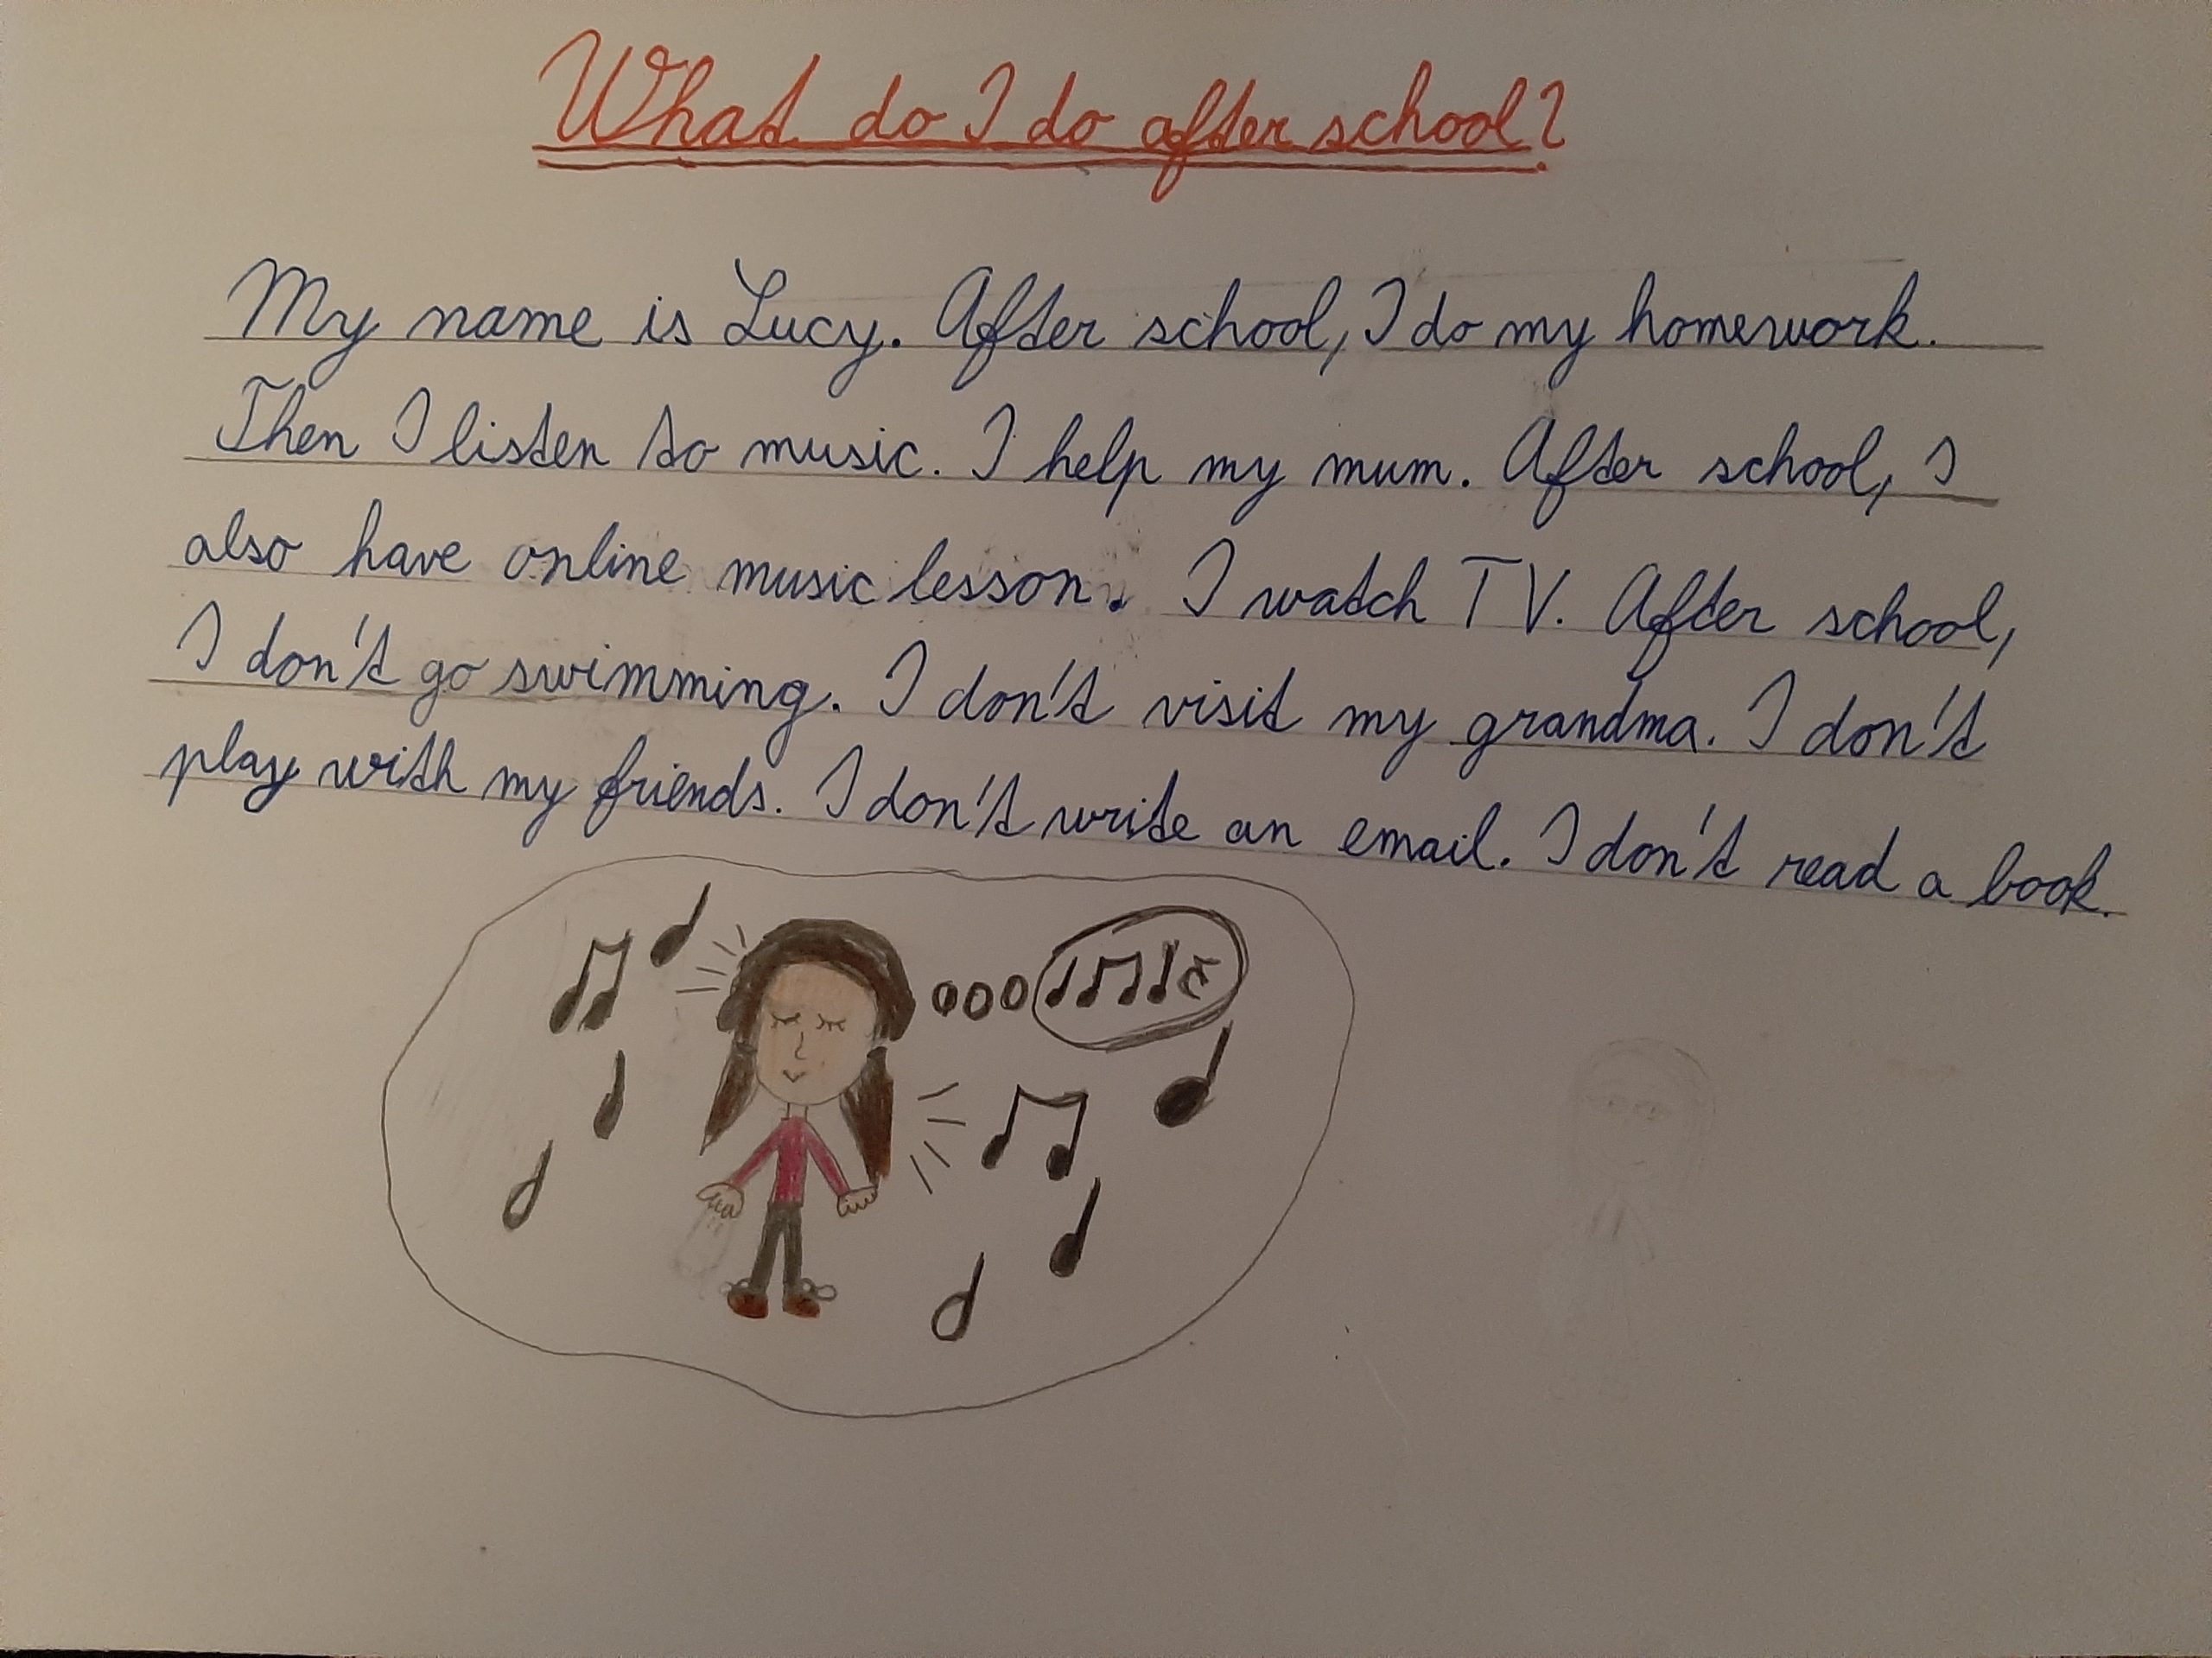 What do I do after school?
My name is Lucy. After school, I do my homework.
Then I listen to music. I help my mum. After school, I
also have online music lesson. I watch TV. After school,
I don't go swimming. I don't visit my grandma. I don't
play with my friends. I don't write an email. I don't read a book.